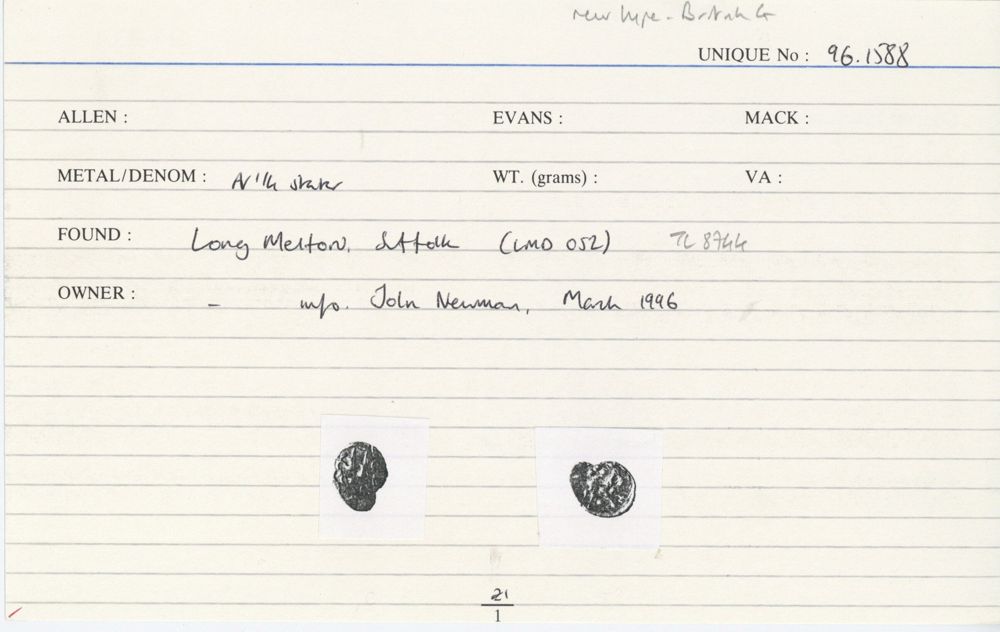 new type - British G
UNIQUE No : 96.1588
ALLEN : EVANS : MACK :
METAL/DENOM : AV 1/4 stater WT. (grams) : VA :
FOUND : Long Melford, Suffolk (LMD 052) TL 8744
OWNER : - info. John Newman, March 1996
21
1